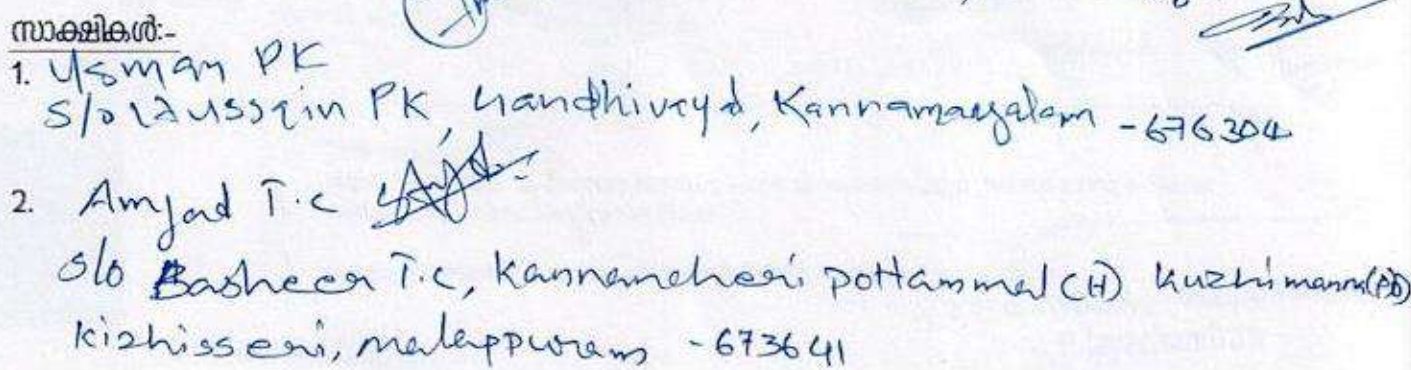 സാക്ഷികൾ:-
1. Usman PK
S/o Hussain PK, Kannamangalam - 676304
2. Amjad T.C
S/o Basheer T.C, Kannancheri pottammal (H) Kuzhimanna (PO)
Kizhisseri, malappuram - 673641